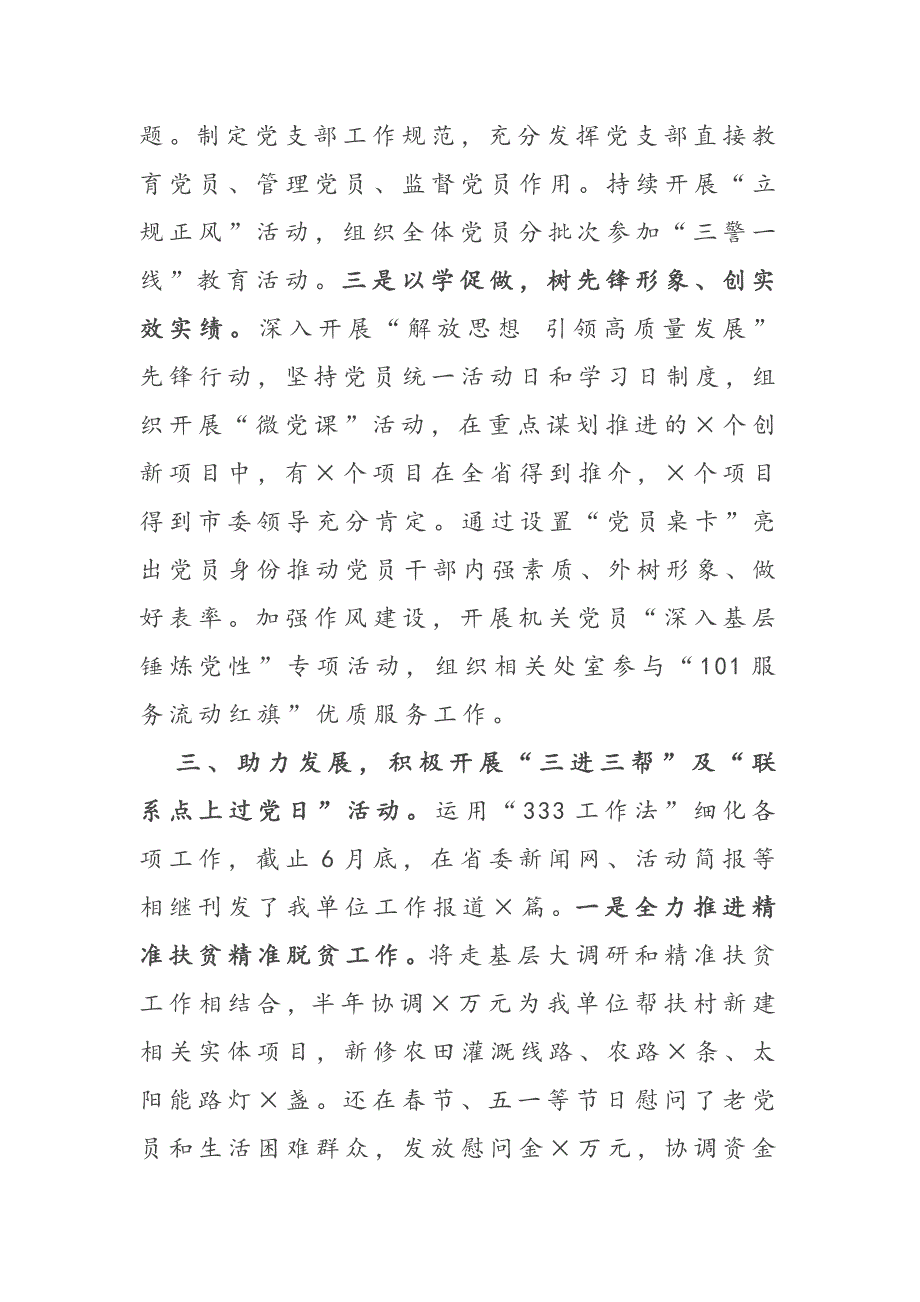 题。制定党支部工作规范，充分发挥党支部直接教
育党员、管理党员、监督党员作用。持续开展“立
规正风”活动，组织全体党员分批次参加“三警一
线”教育活动。三是以学促做，树先锋形象、创实
效实绩。深入开展“解放思想 引领高质量发展”
先锋行动，坚持党员统一活动日和学习日制度，组
织开展“微党课”活动，在重点谋划推进的×个创
新项目中，有×个项目在全省得到推介，×个项目
得到市委领导充分肯定。通过设置“党员桌卡”亮
出党员身份推动党员干部内强素质、外树形象、做
好表率。加强作风建设，开展机关党员“深入基层
锤炼党性”专项活动，组织相关处室参与“101服
务流动红旗”优质服务工作。
三、助力发展，积极开展“三进三帮”及“联
系点上过党日”活动。运用“333工作法”细化各
项工作，截止6月底，在省委新闻网、活动简报等
相继刊发了我单位工作报道×篇。一是全力推进精
准扶贫精准脱贫工作。将走基层大调研和精准扶贫
工作相结合，半年协调×万元为我单位帮扶村新建
相关实体项目，新修农田灌溉线路、农路×条、太
阳能路灯×盏。还在春节、五一等节日慰问了老党
员和生活困难群众，发放慰问金×万元，协调资金